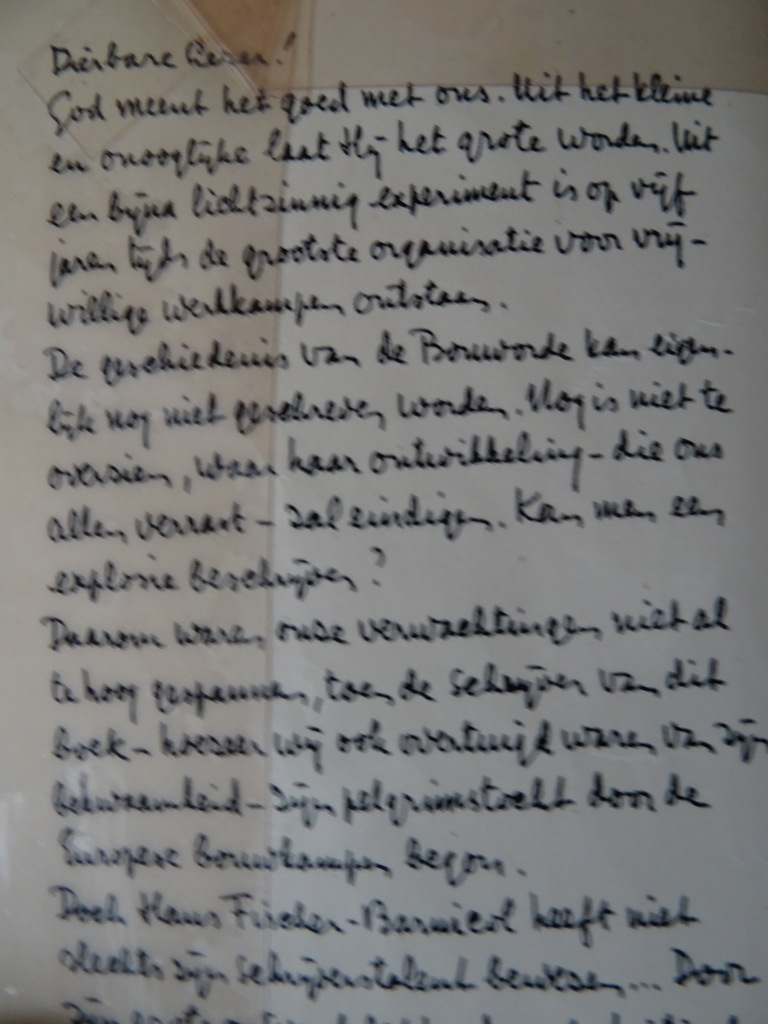 Dierbare Lezer!
God meent het goed met ons. Uit het kleine
en onooglijke laat Hij het grote worden. Uit
een bijna lichtzinnig experiment is op vijf
jaren tijds de grootste organisatie voor vrij-
willige werkkampen ontstaan.
De geschiedenis van de Bouworde kan eigen-
lijk nog niet geschreven worden. Nog is niet te
overzien, waar haar ontwikkeling - die ons
allen verrast - zal eindigen. Kan men een
explosie beschrijven?
Daarom waren onze verwachtingen niet al
te hoog gespannen, toen de schrijver van dit
boek - hoezeer wij ook overtuigd waren van zijn
bekwaamheid - zijn pelgrimstocht door de
Europese bouwkampen begon.
Doch Hans Fischer-Barnicol heeft niet
slechts zijn schrijverstalent bewezen... Door
zijn grote